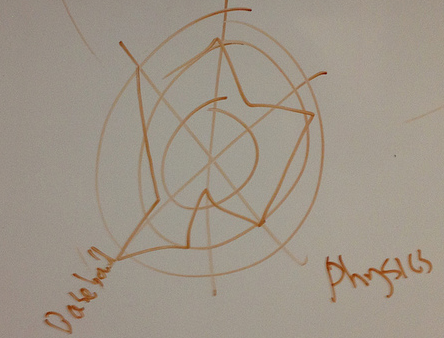 Baseball
Physics